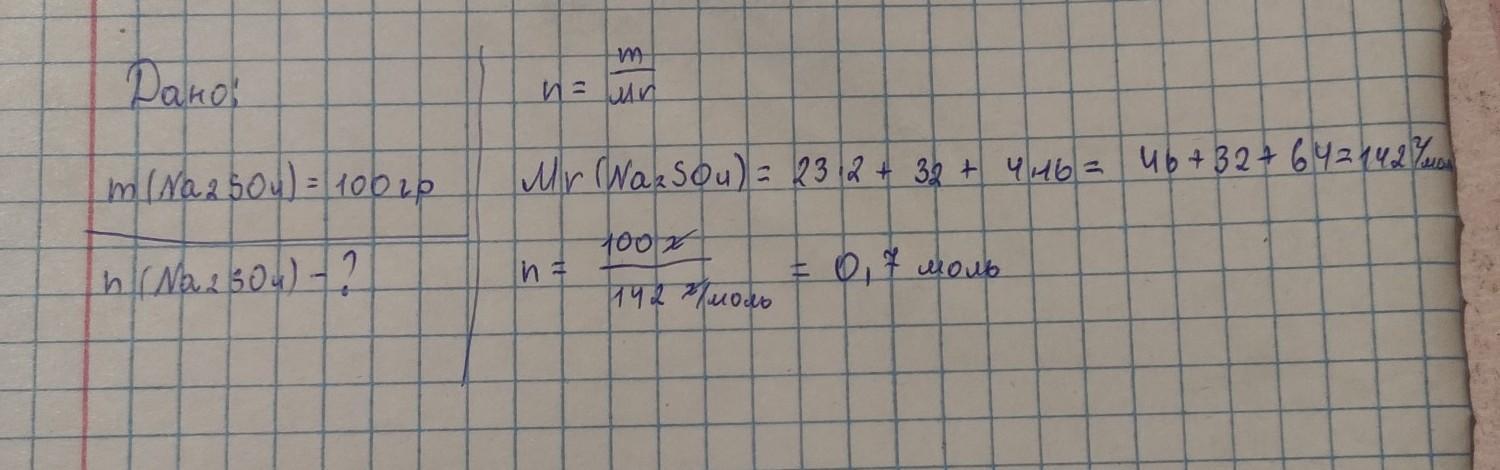 Дано:
m(Na2SO4) = 100гр
n(Na2SO4) - ?
n = m/Mr
Mr(Na2SO4) = 23.2 + 32 + 4.16 = 46 + 32 + 64 = 142 г/мол
n = 100 г / 142 г/моль = 0,7 моль